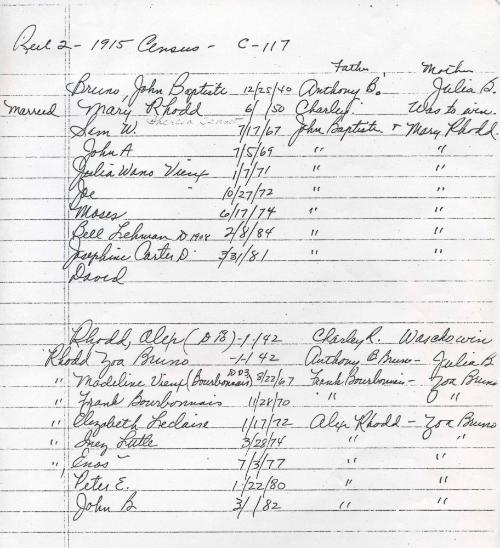 Reel 2 - 1915 Census - C-117
Father Mother
Bruno, John Baptiste 12/25/40 Anthony B. Julia B.
Married Mary Rhodd 6/ /50 Charley Was to win.
Sim W. 7/17/67 John Baptiste + Mary Rhodd.
John A 7/5/69 " "
Julia Wano Vieux 1/7/71 " "
Joe " 10/27/72 " "
Moses 6/17/74 " "
Bell Lehman D 1908 2/8/84 " "
Josephine Carter D. 3/31/81 " "
David
Rhodd, Alex (D 18) -1-42 Charley R. Waschswin
Rhodd Zoa Bruno -1-42 Anthony B Bruno - Julia B
" Madeline Vieux (Bourbonnais) D 03 8/22/67 Frank Bourbonnais - Zoa Bruno
" Frank Bourbonnais 11/28/70 " " "
" Elizabeth Leclaise 1/17/72 Alex Rhodd - Zoa Bruno
" Inez Lutle 3/28/74 " "
" Enos 7/3/77 " "
Peter E. 1/22/80 " "
John B 3/1/82 " "